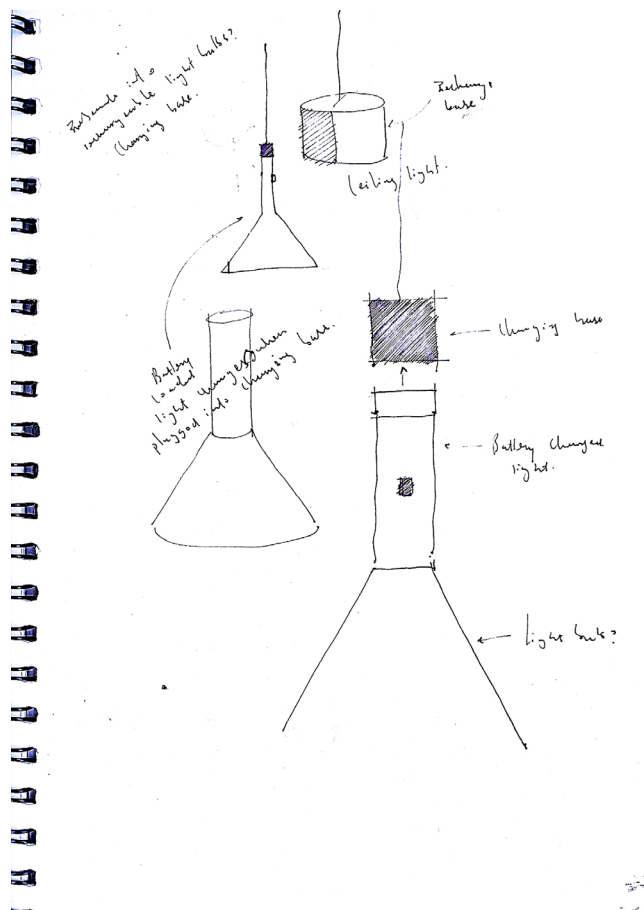 Research into
rechargeable light bulbs?
Charging base.
Recharge
base
Ceiling light.
Charging base
Battery
loaded
light charges when
plugged into charging base.
Battery charged
light.
light bulb?